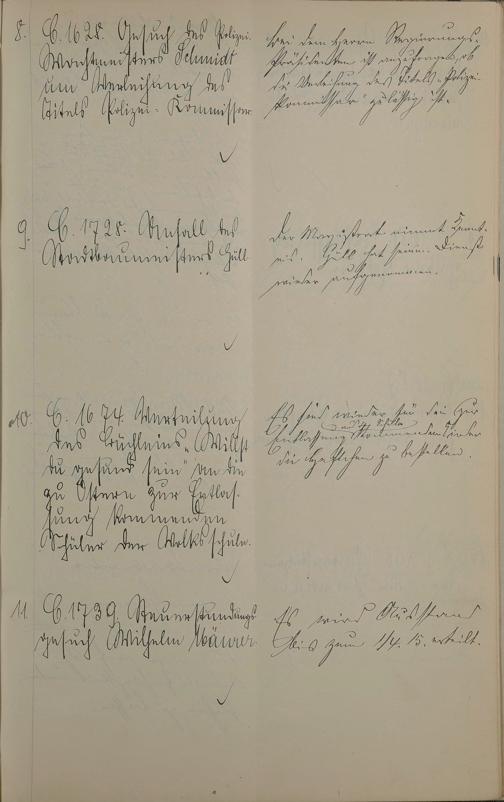 8. C. 1628. Gesuch des Polizei-
Wachtmeisters Schmidt
um Verleihung des
Titels Polizei-Kommissar
Bei dem Herrn Regierungs-
Präsidenten ist anzufragen, ob
die Verleihung des Titels „Polizei-
Kommissar“ zulässig ist.
9. C. 1725. Unfall des
Stadtbaumeisters Hüll
Der Magistrat nimmt Kennt-
nis. Hüll hat seinen Dienst
wieder aufgenommen.
10. C. 1674. Verteilung
des Büchleins „Willst
du gesund sein“ an die
zu Ostern zur Entlas-
sung kommenden
Schüler der Volksschule.
Es sind wieder für die zur
Entlassung kommenden Kinder
die Heftchen zu bestellen.
11. C. 1739. Steuerstundungs-
gesuch Wilhelm Mäurer
Es wird Ausstand
bis zum 1/4. 15. erteilt.